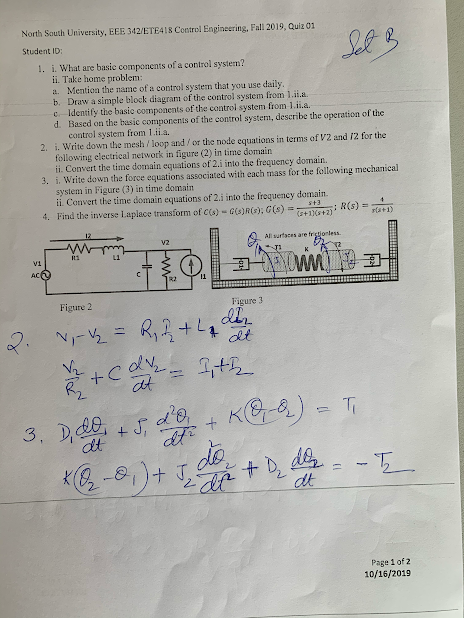 North South University, EEE 342/ETE418 Control Engineering, Fall 2019, Quiz 01
Set B
Student ID:
1. i. What are basic components of a control system?
ii. Take home problem:
a. Mention the name of a control system that you use daily.
b. Draw a simple block diagram of the control system from 1.ii.a.
c. Identify the basic components of the control system from 1.ii.a.
d. Based on the basic components of the control system, describe the operation of the
control system from 1.ii.a.
2. i. Write down the mesh / loop and / or the node equations in terms of V2 and I2 for the
following electrical network in figure (2) in time domain
ii. Convert the time domain equations of 2.i into the frequency domain.
3. i. Write down the force equations associated with each mass for the following mechanical
system in Figure (3) in time domain
ii. Convert the time domain equations of 2.i into the frequency domain.
4. Find the inverse Laplace transform of C(s) = G(s)R(s); G(s) = s+3/(s+1)(s+2); R(s) = 4/s(s+1)
I2
V2
V1
AC
R1
L1
C
R2
I1
All surfaces are frictionless.
θ1
T1
K
θ2
T2
Figure 2
Figure 3
2. V1-V2 = R1I2 + L1 dI2/dt
V2/R2 + C dV2/dt = I1+I2
3. D1 dθ1/dt + J1 d²θ1/dt² + K(θ1-θ2) = T1
K(θ2-θ1) + J2 d²θ2/dt² + D2 dθ2/dt = -T2
Page 1 of 2
10/16/2019